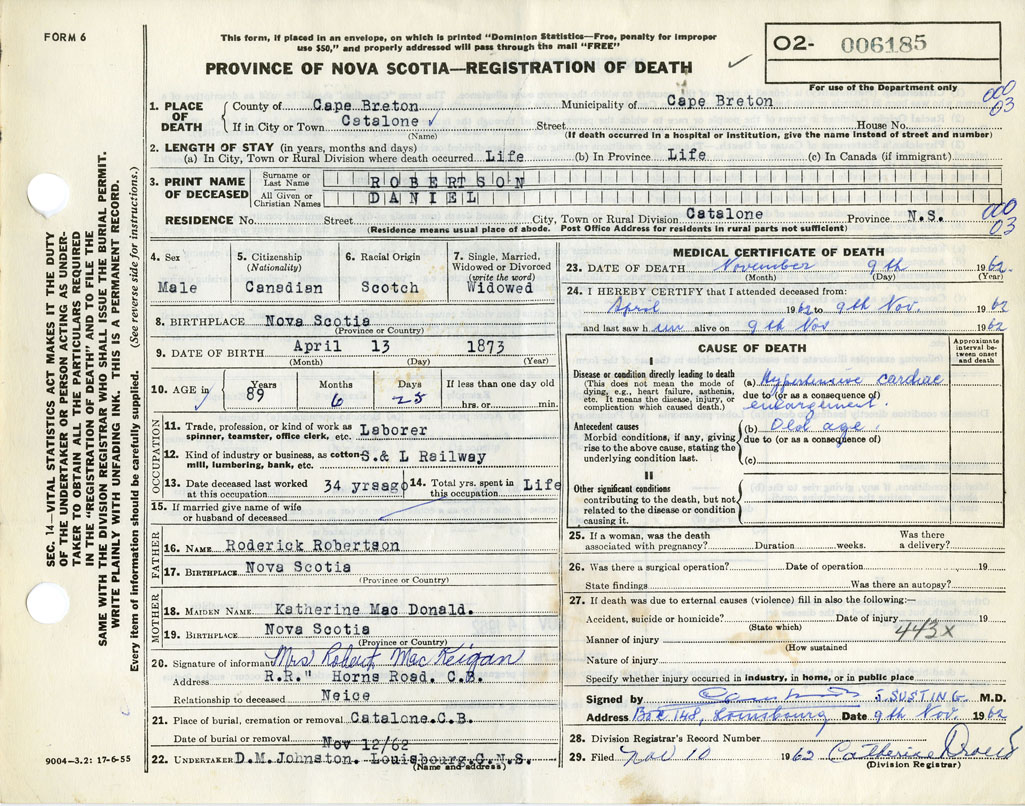 FORM 6
This form, if placed in an envelope, on which is printed "Dominion Statistics—Free, penalty for improper
use $50," and properly addressed will pass through the mail "FREE"
PROVINCE OF NOVA SCOTIA—REGISTRATION OF DEATH
O2- 006185
For use of the Department only
SEC. 14—VITAL STATISTICS ACT MAKES IT THE DUTY
OF THE UNDERTAKER OR PERSON ACTING AS UNDER-
TAKER TO OBTAIN ALL THE PARTICULARS REQUIRED
IN THE "REGISTRATION OF DEATH" AND TO FILE THE
SAME WITH THE DIVISION REGISTRAR WHO SHALL ISSUE THE BURIAL PERMIT.
WRITE PLAINLY WITH UNFADING INK. THIS IS A PERMANENT RECORD.
Every item of information should be carefully supplied. (See reverse side for instructions.)
1. PLACE OF DEATH County of Cape Breton Municipality of Cape Breton 000 03
If in City or Town Catalone ✓ Street House No.
(Name) (If death occurred in a hospital or institution, give the name instead of street and number)
2. LENGTH OF STAY (in years, months and days)
(a) In City, Town or Rural Division where death occurred Life (b) In Province Life (c) In Canada (if immigrant)
3. PRINT NAME OF DECEASED Surname or Last Name ROBERTSON
All Given or Christian Names DANIEL
RESIDENCE No. Street City, Town or Rural Division Catalone Province N.S. 000 03
(Residence means usual place of abode. Post Office Address for residents in rural parts not sufficient)
4. Sex Male
5. Citizenship (Nationality) Canadian
6. Racial Origin Scotch
7. Single, Married, Widowed or Divorced (write the word) Widowed
8. BIRTHPLACE Nova Scotia
(Province or Country)
9. DATE OF BIRTH April 13 1873
(Month) (Day) (Year)
10. AGE in ✓ Years 89 Months 6 Days 25 If less than one day old hrs. or min.
OCCUPATION
11. Trade, profession, or kind of work as spinner, teamster, office clerk, etc. Laborer
12. Kind of industry or business, as cotton mill, lumbering, bank, etc. S.& L Railway
13. Date deceased last worked at this occupation 34 yrsago 14. Total yrs. spent in this occupation Life
15. If married give name of wife or husband of deceased
FATHER
16. NAME Roderick Robertson
17. BIRTHPLACE Nova Scotia
(Province or Country)
MOTHER
18. MAIDEN NAME Katherine Mac Donald.
19. BIRTHPLACE Nova Scotia
(Province or Country)
20. Signature of informant Mrs Robert Mac Keigan
Address R.R." Horns Road. C.B.
Relationship to deceased Neice
21. Place of burial, cremation or removal Catalone.C.B.
Date of burial or removal Nov 12/62
22. UNDERTAKER D.M.Johnston. Louisbourg C.N.S.
(Name and address)
9004-3.2: 17-6-55
MEDICAL CERTIFICATE OF DEATH
23. DATE OF DEATH November 9th 1962
(Month) (Day) (Year)
24. I HEREBY CERTIFY that I attended deceased from:
April 1962 to 9th Nov. 1962
and last saw him alive on 9th Nov 1962
CAUSE OF DEATH
Approximate interval between onset and death
I
Disease or condition directly leading to death
(This does not mean the mode of dying, e.g., heart failure, asthenia, etc. It means the disease, injury, or complication which caused death.)
(a) Hypertensive cardiac
due to (or as a consequence of)
enlargment.
Antecedent causes
Morbid conditions, if any, giving rise to the above cause, stating the underlying condition last.
(b) Old age.
due to (or as a consequence of)
(c)
II
Other significant conditions
contributing to the death, but not related to the disease or condition causing it.
25. If a woman, was the death associated with pregnancy? Duration weeks. Was there a delivery?
26. Was there a surgical operation? Date of operation 19
State findings Was there an autopsy?
27. If death was due to external causes (violence) fill in also the following:—
Accident, suicide or homicide? Date of injury 19
(State which) 443X
Manner of injury
(How sustained
Nature of injury
Specify whether injury occurred in industry, in home, or in public place
Signed by J. SUSTING M.D.
Address Box 148, Louisbourg Date 9th Nov. 1962
28. Division Registrar's Record Number
29. Filed Nov 10 1962 Catherine
(Division Registrar)